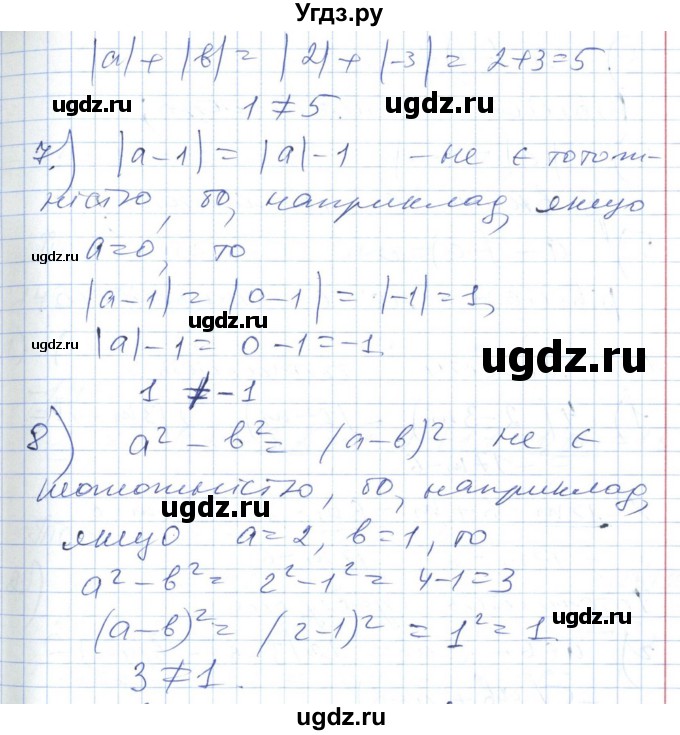 Угдз.ру
|a| + |в| = |2| + |-3| = 2+3=5.
1 ≠ 5.
7.) |a-1| = |a|-1 - не є тотож-
ністю, бо, наприклад, якщо
a=0, то
|a-1| = |0-1| = |-1| = 1,
|a|-1 = 0-1=-1
1 ≠ -1
8) a² - в² = (a-в)² не є
тотожністю, бо, наприклад,
якщо a=2, в=1, то
a²-в² = 2²-1² = 4-1=3
(a-в)² = (2-1)² = 1² = 1
3 ≠ 1.
ugdz.ru
ugdz.ru
ugdz.ru
ugdz.ru
ugdz.ru
ugdz.ru
ugdz.ru
ugdz.ru
ugdz.ru
ugdz.ru